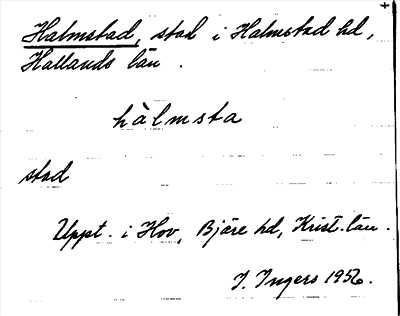 Halmstad, stad i Halmstad hd,
Hallands län.
hàlmsta
stad
Uppt. i Hov, Bjäre hd, Krist. län.
I. Ingers 1956.